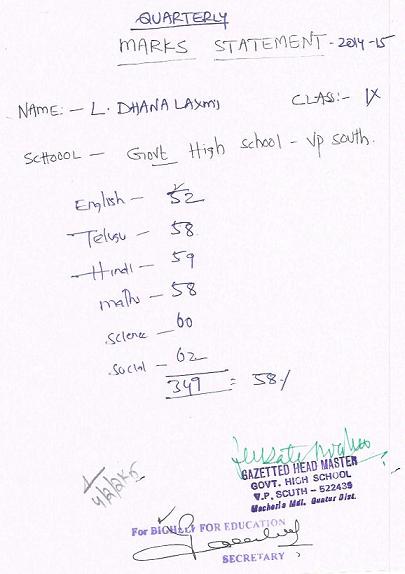 QUARTERLY
MARKS STATEMENT - 2014-15
NAME:- L. DHANA LAXMI CLASS:- IX
SCHOOOL - Govt High school - Vp south.
English - 52
Telugu - 58
Hindi - 59
maths - 58
science - 60
social - 62
349 = 58%
GAZETTED HEAD MASTER
GOVT. HIGH SCHOOL
V.P. SOUTH - 522435
Macherla Mdl. Guntur Dist.
For FOR EDUCATION
SECRETARY